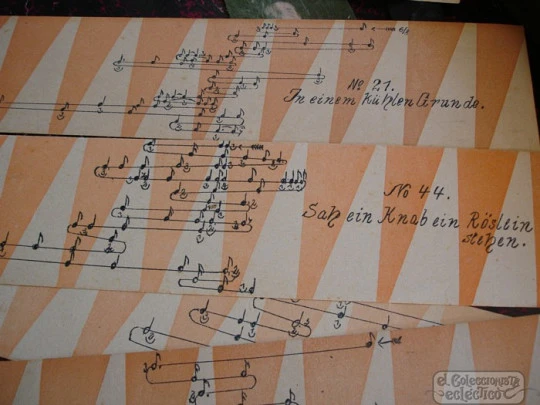 No 21.
In einem kühlen Grunde.
No 44.
Sah ein Knab ein Röslein
stehen.
el Coleccionista
ecléctico